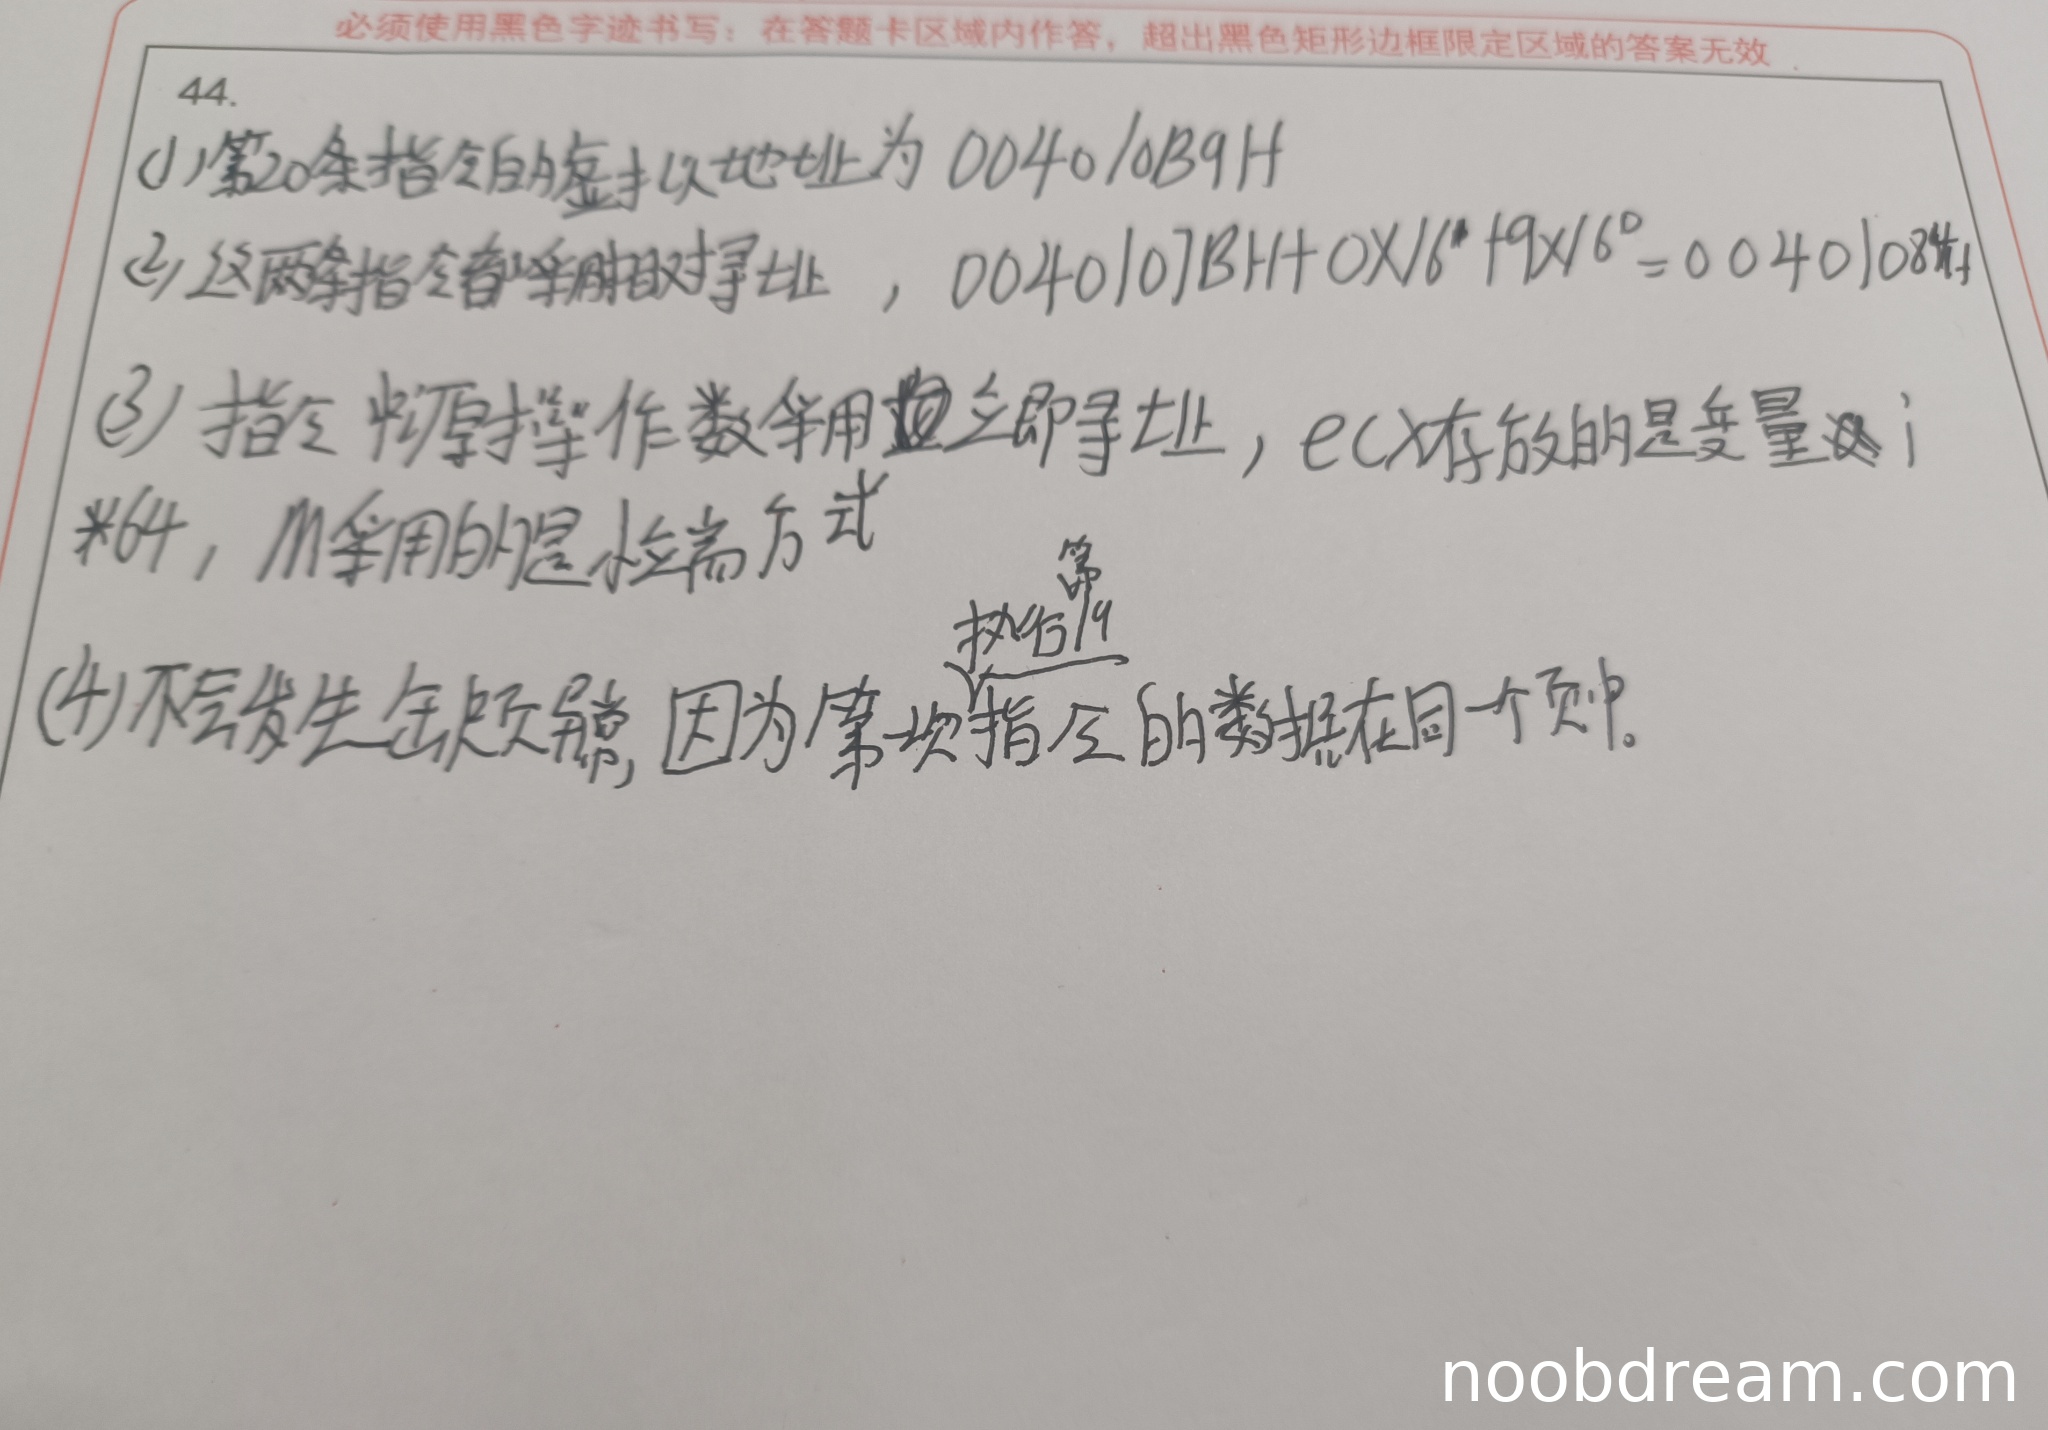 必须使用黑色字迹书写：在答题卡区域内作答，超出黑色矩形边框限定区域的答案无效
44.
(1)第20条指令的虚拟地址为 004010B9H
(2)这两条指令都采用相对寻址，0040107BH+0X16+9X16⁰=00401084H
(3)指令中源操作数采用立即寻址，ecx存放的是变量i
*64，M采用的是小端方式
第
执行19
(4)不会发生缺页异常，因为第一次指令的数据在同一个页中。
noobdream.com